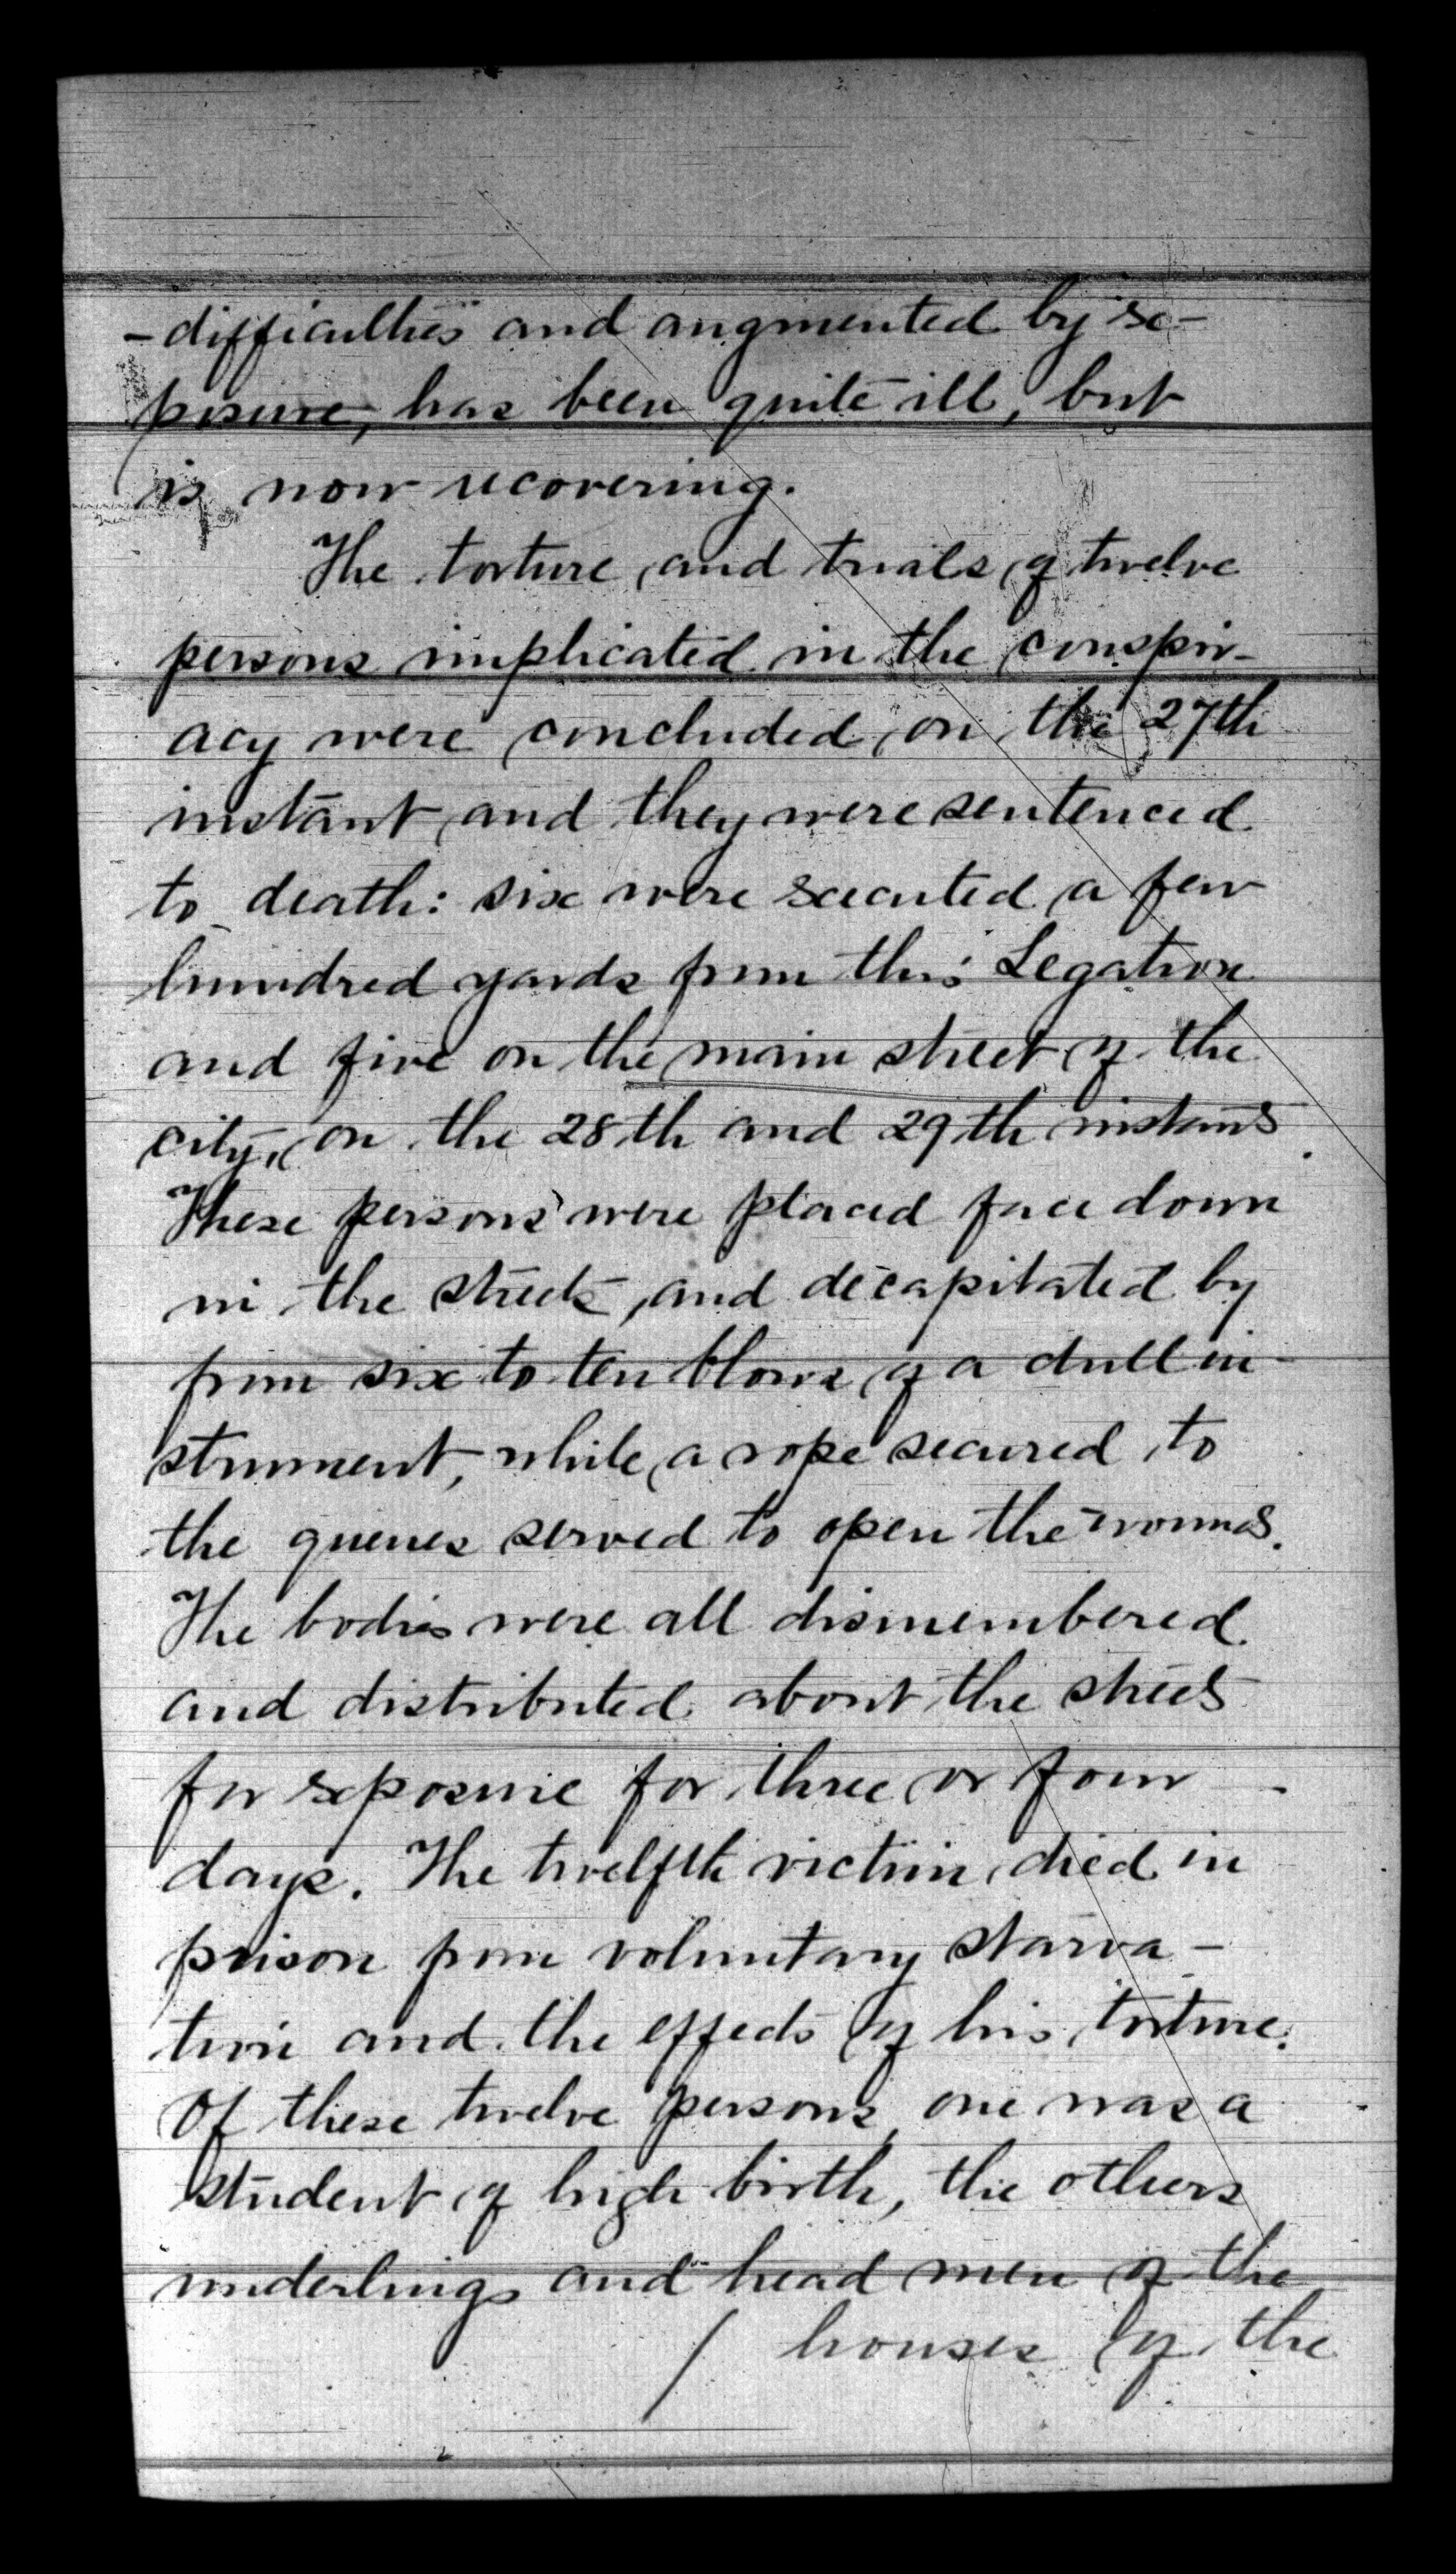 -difficulties and augmented by ex-
posure, has been quite ill, but
is now recovering.
The torture and trials of twelve
persons implicated in the conspir-
acy were concluded on the 27th
instant and they were sentenced
to death: six were executed a few
hundred yards from this Legation
and five on the main street of the
city, on the 28th and 29th instants.
These persons were placed face down
in the streets, and decapitated by
from six to ten blows of a dull in-
strument, while a rope secured to
the queues served to open the wounds.
The bodies were all dismembered
and distributed about the streets
for exposure for three or four -
days. The twelfth victim died in
prison from voluntary starva-
tion and the effects of his torture.
Of these twelve persons, one was a
student of high birth, the others
underlings and head men of the
/ houses of the